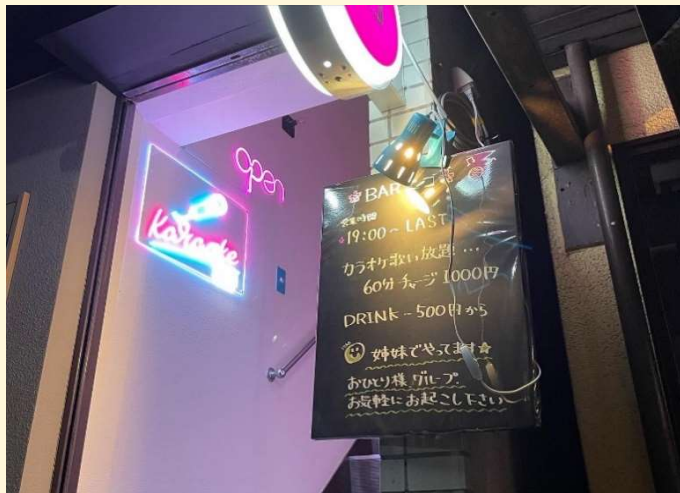 open
Karaoke
BAR
営業時間
19:00～LAST
カラオケ歌い放題...
60分チャージ 1000円
DRINK～500円から
姉妹でやってます☆
おひとり様、グループ、
お気軽にお起こし下さい